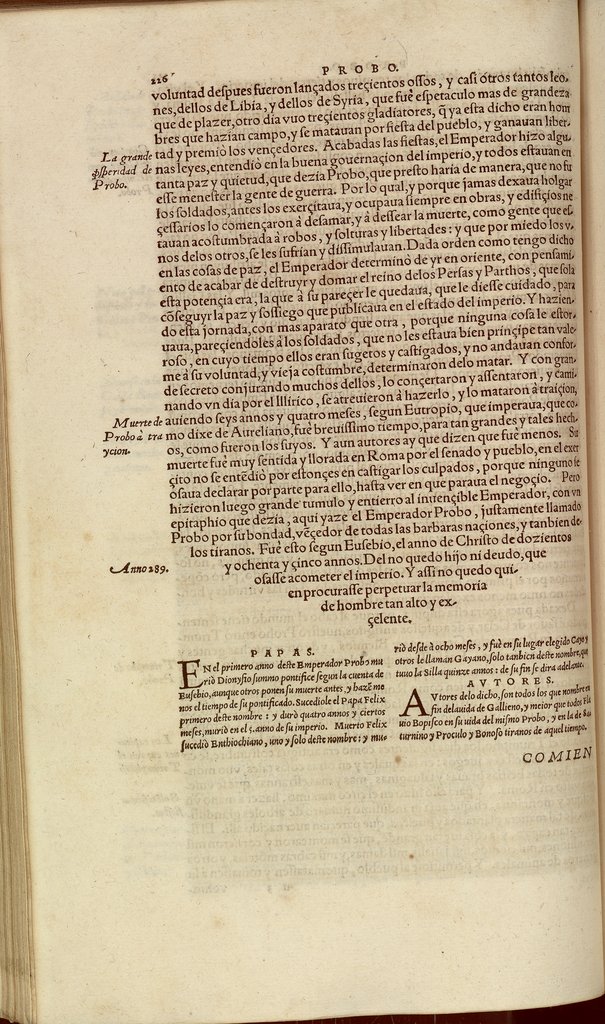 226
PROBO.
voluntad despues fueron lançados treçientos ossos, y casi otros tantos leo-
nes, dellos de Libia, y dellos de Syria, que fuè espetaculo mas de grandeza
que de plazer, otro dia vuo treçientos gladiatores, q̃ ya esta dicho eran hom
bres que hazian campo, y se matauan por fiesta del pueblo, y ganauan liber-
La grande
p̱speridad de
Probo.
tad y premiò los vençedores. Acabadas las fiestas, el Emperador hizo algu-
nas leyes, entendiò en la buena gouernaçion del imperio, y todos estauan en
tanta paz y quietud, que dezia Probo, que presto haria de manera, que no fu
esse menester la gente de guerra. Por lo qual, y porque jamas dexaua holgar
los soldados, antes los exerçitaua, y ocupaua siempre en obras, y edifiçios ne
çessarios lo començaron à desamar, y à dessear la muerte, como gente que es-
tauan acostumbrada à robos, y solturas y libertades: y que por miedo los v-
nos delos otros, se les sufrian y dissimulauan. Dada orden como tengo dicho
en las cosas de paz, el Emperador determinò de yr en oriente, con pensami-
ento de acabar de destruyr y domar el reino delos Persas y Parthos, que sola
esta potençia era, la que à su pareçer le quedaua, que le diesse cuidado, para
cõseguyr la paz y sossiego que publicaua en el estado del imperio. Y hazien-
do esta jornada, con mas aparato que otra, porque ninguna cosa le estor-
uaua, pareçiendoles à los soldados, que no les estaua bien prinçipe tan vale-
roso, en cuyo tiempo ellos eran sugetos y castigados, y no andauan confor-
me à su voluntad, y vieja costumbre, determinaron delo matar. Y con gran-
de secreto conjurando muchos dellos, lo conçertaron y assentaron, y cami-
nando vn dia por el Illirico, se atreuieron à hazerlo, y lo mataron à traiçion,
Muerte de
Probo à tra
ycion.
auiendo seys annos y quatro meses, segun Eutropio, que imperaua, que co-
mo dixe de Aureliano, fuè breuissimo tiempo, para tan grandes y tales hech-
os, como fueron los suyos. Y aun autores ay que dizen que fuè menos. Su
muerte fuè muy sentida y llorada en Roma por el senado y pueblo, en el exer
çito no se entẽdiò por estonçes en castigar los culpados, porque ninguno se
osaua declarar por parte para ello, hasta ver en que paraua el negoçio. Pero
hizieron luego grande tumulo y entierro al inuençible Emperador, con vn
epitaphio que dezia, aqui yaze el Emperador Probo, justamente llamado
Probo por su bondad, vẽçedor de todas las barbaras naçiones, y tanbien de-
los tiranos. Fuè esto segun Eusebio, el anno de Christo de dozientos
Anno 289.
y ochenta y çinco annos. Del no quedo hijo ni deudo, que
osasse acometer el imperio. Y assi no quedo qui-
en procurasse perpetuar la memoria
de hombre tan alto y ex-
çelente.
PAPAS.
EN el primero anno deste Emperador Probo mu
riò Dionysio summo pontifice segun la cuenta de
Eusebio, aunque otros ponen su muerte antes, y hazẽ me
nos el tiempo de su pontificado. Sucediole el Papa Felix
primero deste nombre: y durò quatro annos y ciertos
meses, muriò en el 5. anno de su imperio. Muerto Felix
sucediò Enthiochiano, vno y solo deste nombre: y mu-
riò desde à ocho meses, y fuè en su lugar elegido Cayo y
otros le llaman Gayano, solo tanbien deste nombre, que
tuuo la Silla quinze annos: de su fin se dira adelante.
AVTORES.
AVtores delo dicho, son todos los que nombre en
fin delauida de Gallieno, y mejor que todos Fla
uio Bopisco en su uida del mismo Probo, y en la de Sa
turnino y Proculo y Bonoso tiranos de aquel tiempo.
COMIEN